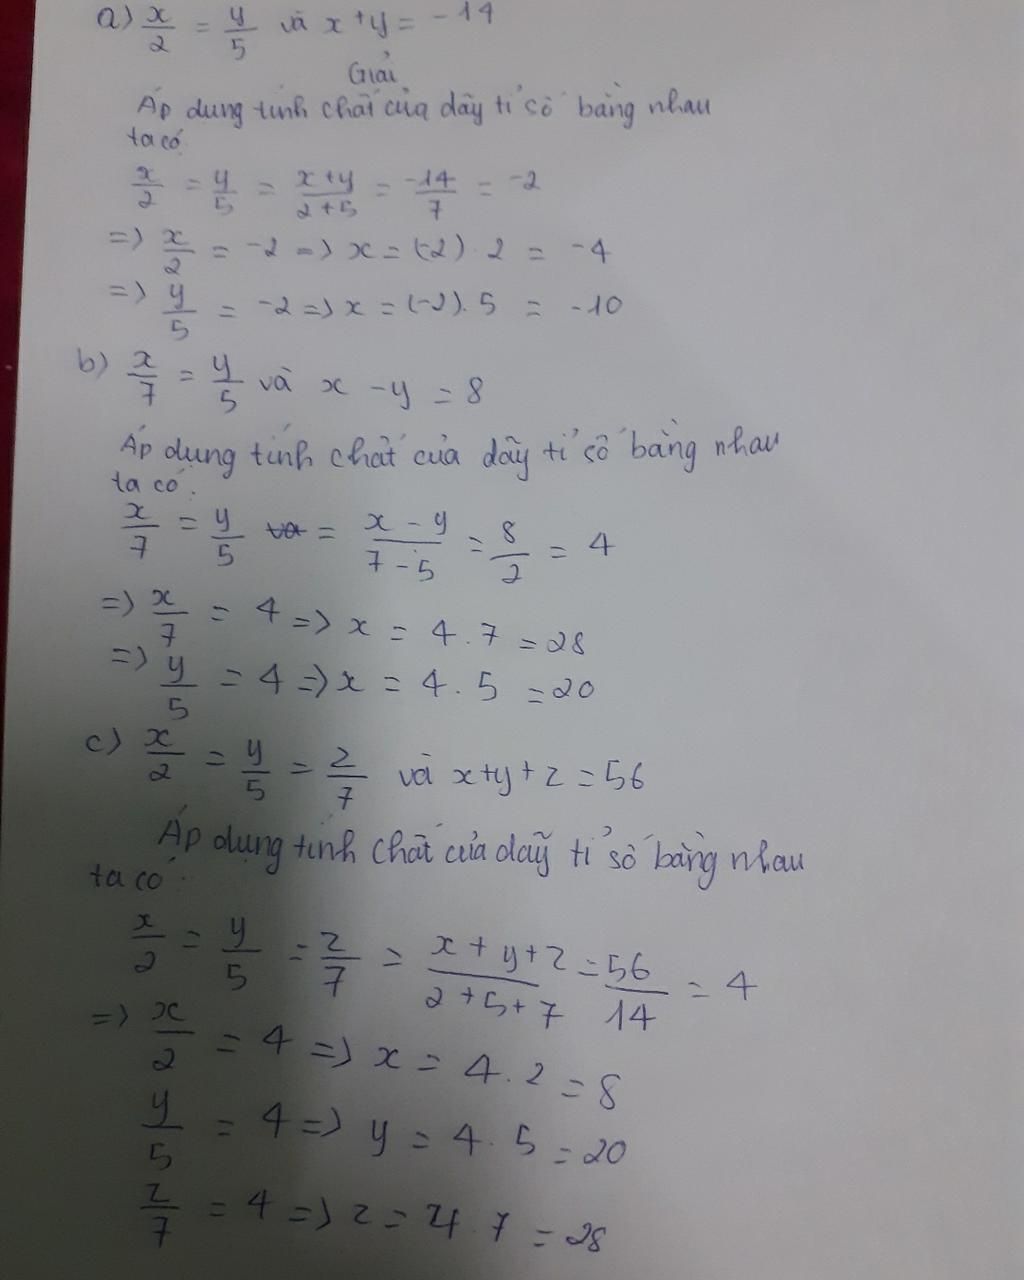 a) x/2 = y/5 và x+y = -14
Giải
Áp dụng tính chất của dãy tỉ số bằng nhau
ta có
x/2 = y/5 = x+y/2+5 = -14/7 = -2
=> x/2 = -2 => x = (-2). 2 = -4
=> y/5 = -2 => x = (-2). 5 = -10
b) x/7 = y/5 và x - y = 8
Áp dụng tính chất của dãy tỉ số bằng nhau
ta có.
x/7 = y/5 = x - y/7 - 5 = 8/2 = 4
=> x/7 = 4 => x = 4 . 7 = 28
=> y/5 = 4 => x = 4 . 5 = 20
c) x/2 = y/5 = z/7 và x+y+z = 56
Áp dụng tính chất của dãy tỉ số bằng nhau
ta có
x/2 = y/5 = z/7 = x + y + z/2 + 5 + 7 = 56/14 = 4
=> x/2 = 4 => x = 4 . 2 = 8
y/5 = 4 => y = 4 . 5 = 20
z/7 = 4 => z = 4 . 7 = 28